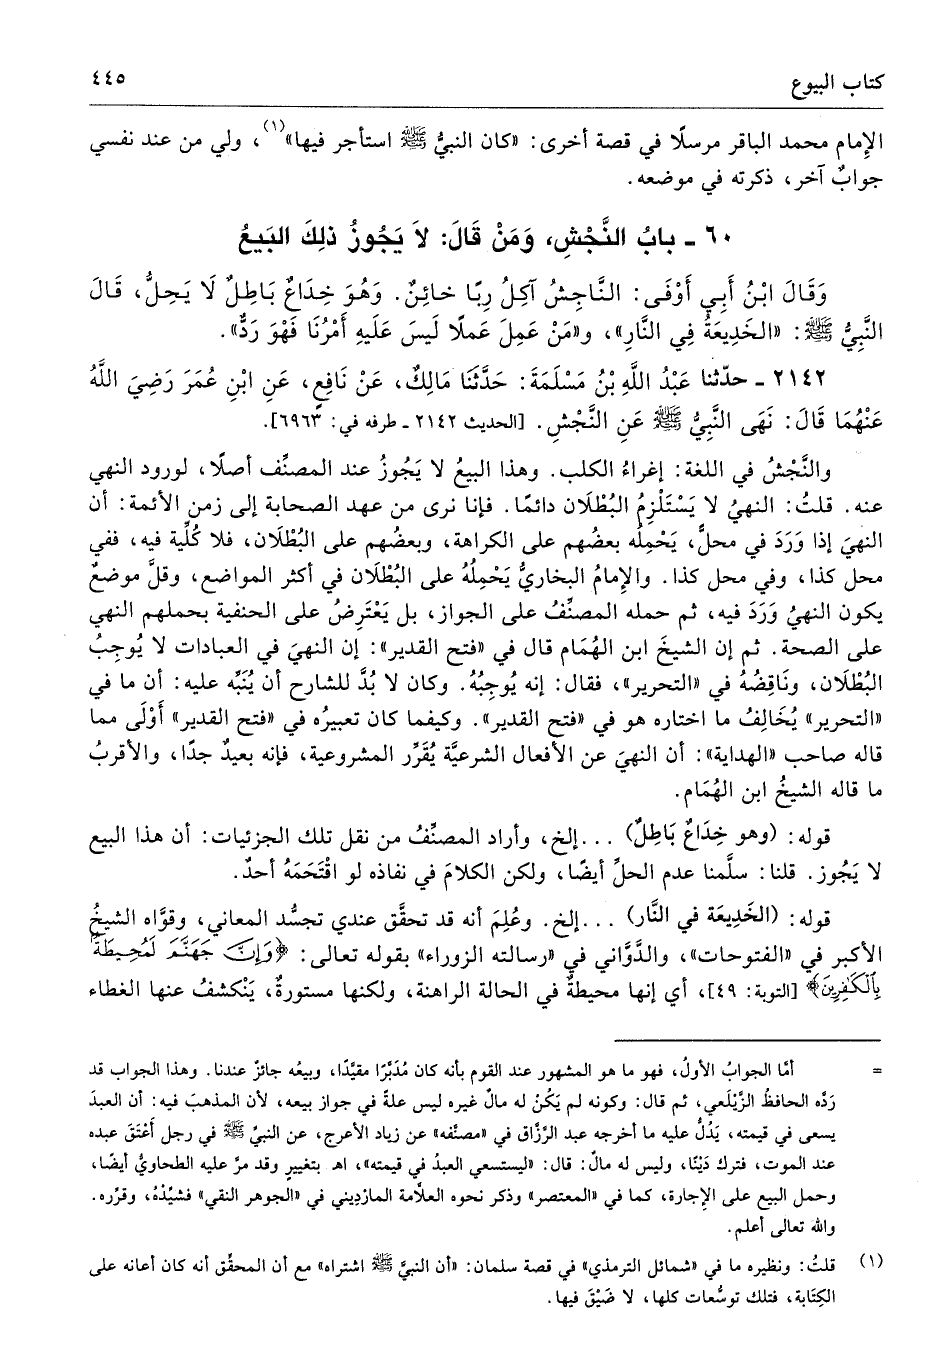 كتاب البيوع ٤٤٥
الإمام محمد الباقر مرسلًا في قصة أخرى: «كان النبيُّ ﷺ استأجر فيها»(١)، ولي من عند نفسي
جوابٌ آخر، ذكرته في موضعه.
٦٠ - بابُ النَّجْشِ، وَمَنْ قَالَ: لاَ يَجُوزُ ذلِكَ البَيعُ
وَقَالَ ابْنُ أَبِي أَوْفَى: النَّاجِشُ آكِلُ رِبًا خائِنٌ. وَهُوَ خِدَاعٌ بَاطِلٌ لَا يَحِلُّ، قَالَ
النَّبِيُّ ﷺ: «الخَدِيعَةُ فِي النَّارِ»، و«مَنْ عَمِلَ عَملًا لَيسَ عَلَيهِ أَمْرُنَا فَهْوَ رَدٌّ».
٢١٤٢ - حدّثنا عَبْدُ اللَّهِ بْنُ مَسْلَمَةَ: حَدَّثَنَا مَالِكٌ، عَنْ نَافِعٍ، عَنِ ابْنِ عُمَرَ رَضِيَ اللَّهُ
عَنْهُمَا قَالَ: نَهَى النَّبِيُّ ﷺ عَنِ النَّجْشِ. [الحديث ٢١٤٢ - طرفه في: ٦٩٦٣].
والنَّجْشُ في اللغة: إغراءُ الكلب. وهذا البيعُ لا يَجُوزُ عند المصنِّف أصلًا، لورود النهي
عنه. قلتُ: النهيُ لا يَسْتَلْزِمُ البُطْلان دائمًا. فإنا نرى من عهد الصحابة إلى زمن الأئمة: أن
النهيَ إذا وَرَدَ في محلٍّ، يَحْمِلُه بعضُهم على الكراهة، وبعضُهم على البُطْلان، فلا كُلِّية فيه، ففي
محل كذا، وفي محل كذا. والإمامُ البخاريُّ يَحْمِلُهُ على البُطْلان في أكثر المواضع، وقلَّ موضعٌ
يكون النهيُ وَرَدَ فيه، ثم حمله المصنِّفُ على الجواز، بل يَعْتَرِضُ على الحنفية بحملهم النهي
على الصحة. ثم إن الشيخَ ابن الهُمَام قال في «فتح القدير»: إن النهيَ في العبادات لا يُوجِبُ
البُطْلان، ونَاقِضُهُ في «التحرير»، فقال: إنه يُوجِبُهُ. وكان لا بُدَّ للشارح أن يُنَبِّه عليه: أن ما في
«التحرير» يُخَالِفُ ما اختاره هو في «فتح القدير». وكيفما كان تعبيرُه في «فتح القدير» أَوْلَى مما
قاله صاحب «الهداية»: أن النهيَ عن الأفعال الشرعيَّة يُقَرِّر المشروعية، فإنه بعيدٌ جدًا، والأقربُ
ما قاله الشيخُ ابن الهُمَام.
قوله: (وهو خِدَاعٌ بَاطِلٌ) ...إلخ، وأراد المصنِّفُ من نقل تلك الجزئيات: أن هذا البيع
لا يَجُوز. قلنا: سلَّمنا عدم الحلِّ أيضًا، ولكن الكلامَ في نفاذه لو اقْتَحَمَهُ أحدٌ.
قوله: (الخَدِيعَة في النَّار) ...إلخ. وعُلِمَ أنه قد تحقَّق عندي تجسُّد المعاني، وقوَّاه الشيخُ
الأكبر في «الفتوحات»، والدَّوَّاني في «رسالته الزوراء» بقوله تعالى: ﴿وَإِنَّ جَهَنَّمَ لَمُحِيطَةٌ
بِٱلْكَٰفِرِينَ﴾ [التوبة: ٤٩]، أي إنها محيطةٌ في الحالة الراهنة، ولكنها مستورةٌ، يَنْكشفُ عنها الغطاء
= أمَّا الجوابُ الأولُ، فهو ما هو المشهور عند القوم بأنه كان مُدَبَّرًا مقيَّدًا، وبيعُه جائزٌ عندنا. وهذا الجواب قد
رَدَّه الحافظُ الزَّيْلَعي، ثم قال: وكونه لم يَكُنْ له مالٌ غيره ليس علةً في جواز بيعه، لأن المذهبَ فيه: أن العبدَ
يسعى في قيمته، يَدُلُّ عليه ما أخرجه عبد الرَّزَّاق في «مصنَّفه» عن زياد الأعرج، عن النبيِّ ﷺ في رجل أَعْتَقَ عبده
عند الموت، فترك دَيْنًا، وليس له مالٌ: قال: «ليستسعي العبدُ في قيمته»، اهـ بتغييرٍ وقد مرَّ عليه الطحاويُّ أيضًا،
وحمل البيع على الإجارة، كما في «المعتصر» وذكر نحوه العلَّامة المارْدِيني في «الجوهر النقي» فشيَّدْهُ، وقرَّره.
والله تعالى أعلم.
(١) قلتُ: ونظيره ما في «شمائل الترمذي» في قصة سلمان: «أن النبيَّ ﷺ اشتراه» مع أن المحقَّق أنه كان أعانه على
الكِتَابة، فتلك توسُّعات كلها، لا ضَيْقَ فيها.